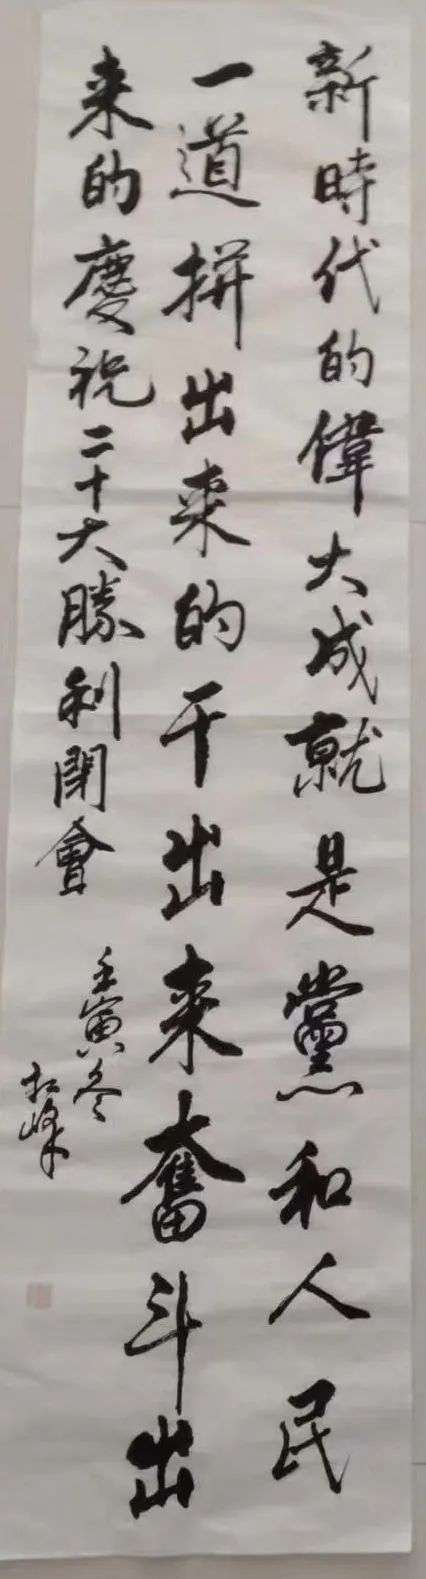 新時代的偉大成就是黨和人民
一道拼出来的干出来奮斗出
来的慶祝二十大勝利閉會
壬寅冬
紅峰